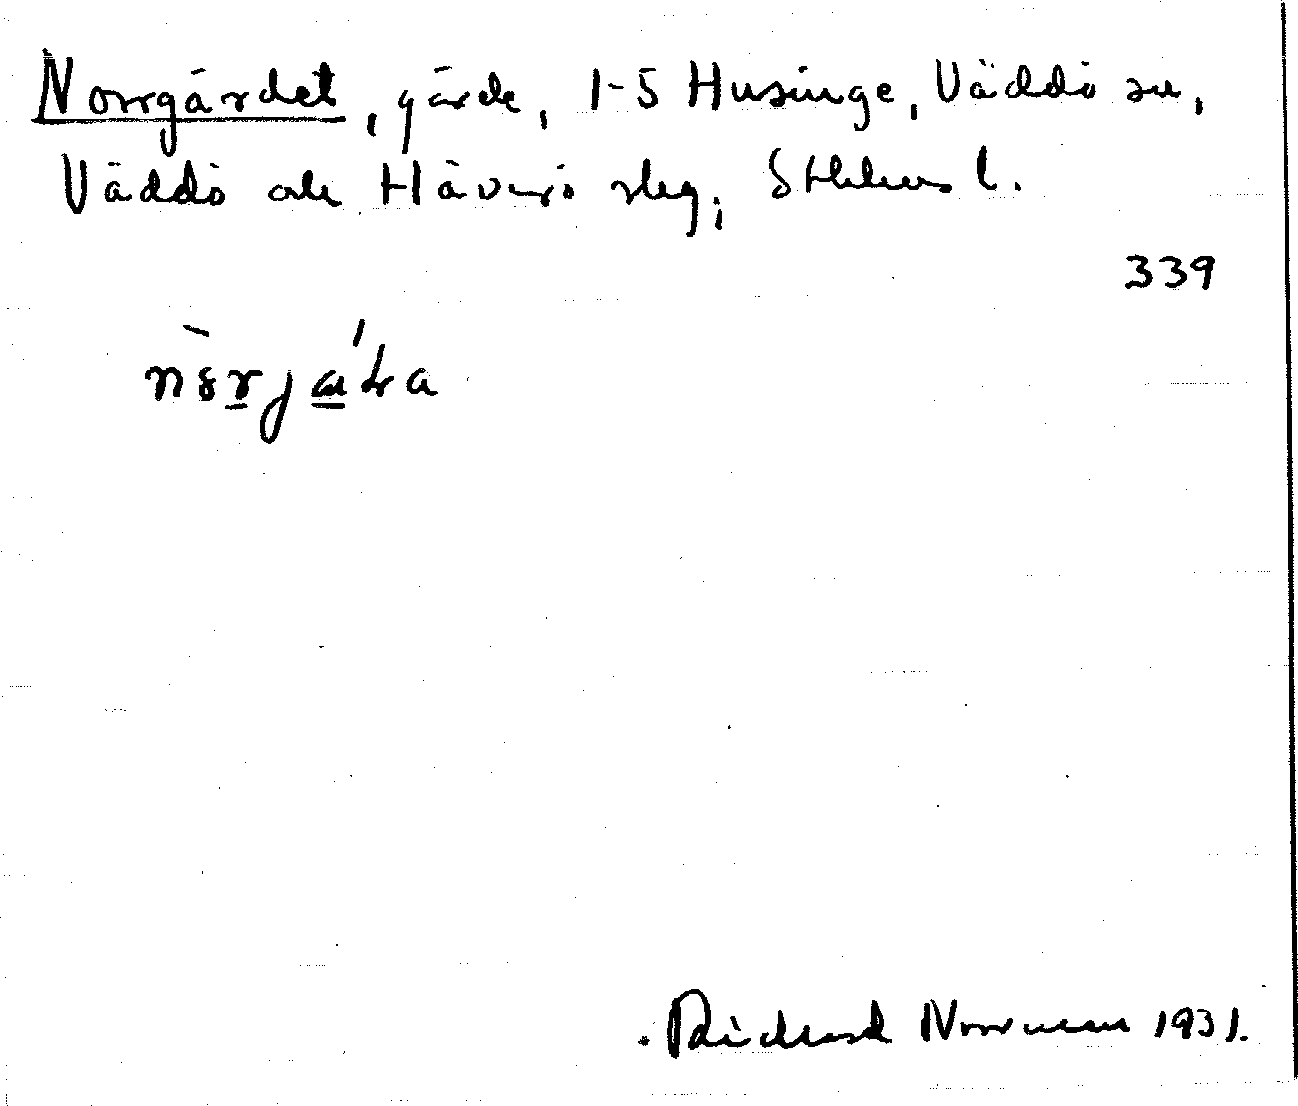 Norrgärdet, gärde, 1-5 Husinge, Väddö sn,
Väddö och Häverö skg, Sthlms l.
339
Richard Norrman 1931.